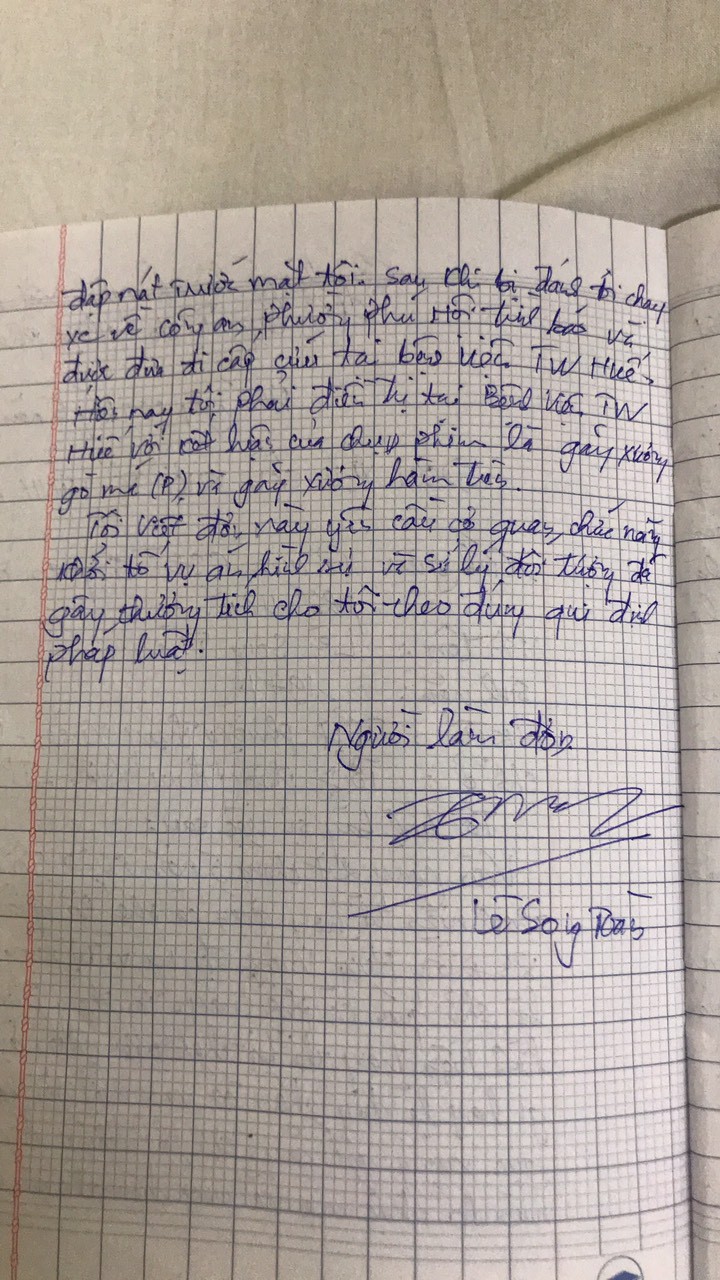 đập nát trước mặt tôi. Sau khi bị đánh tôi chạy
xe về công an phường Phú Hội trình báo và
được đưa đi cấp cứu tại bệnh viện TW Huế.
Hôm nay tôi phải điều trị tại Bệnh viện TW
Huế với kết luận của chụp phim là gãy xương
gò má (P) và gãy xương hàm trên.
Tôi viết đơn này yêu cầu cơ quan chức năng
khởi tố vụ án hình sự và sử lý đối tượng đã
gây thương tích cho tôi theo đúng qui định
pháp luật.
Người làm đơn
Lê Song Toàn